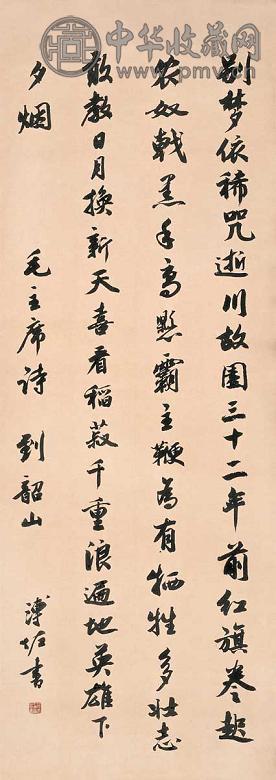 中华收藏网
www.pmv.cn
别梦依稀咒逝川故园三十二年前红旗卷起
农奴戟黑手高悬霸主鞭为有牺牲多壮志
敢教日月换新天喜看稻菽千重浪遍地英雄下
夕烟
毛主席诗 到韶山 溥佐书